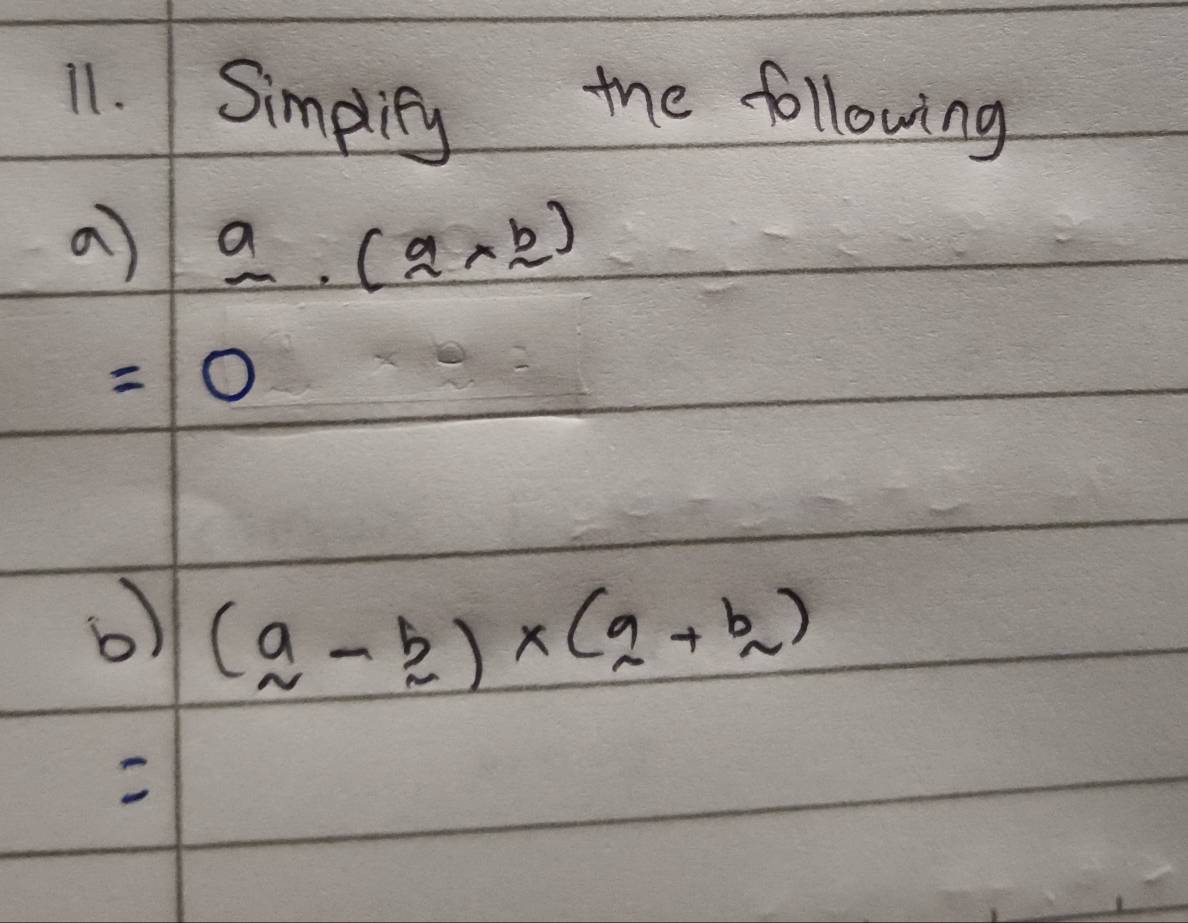 11. Simplify the following
a) a̰ . (a̰ × b̰)
= 0
b) (a̰ - b̰) × (a̰ + b̰)
=